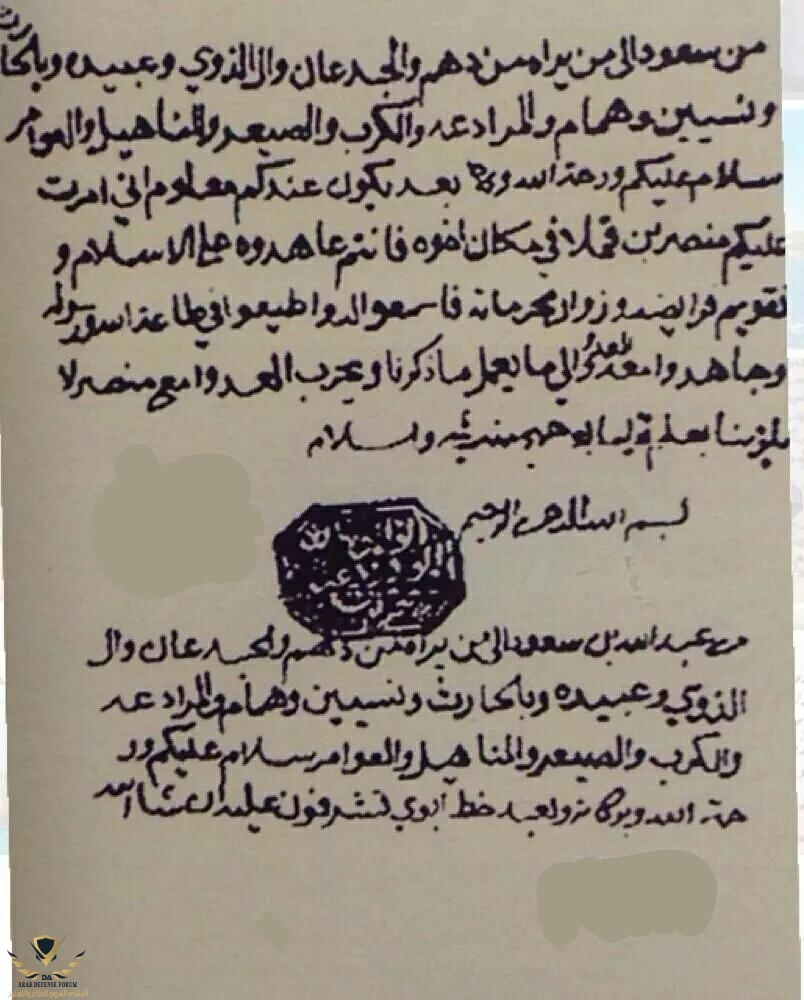 من سعود الى من يراه من دهم والجدعان وال الذوي وعبيده وبلحارث
ونسيين وهمام والمرادعه والكرب والصيعر والمناهيل والعوامر
سلام عليكم ورحمة الله وبعد يكون عندكم معلوم اني امرت
عليكم منصر بن قملا في مكان اخوه فانتم عاهدوه على الاسلام و
تقويم فرايضه وزوال محرماته فاسمعوا له واطيعوا في طاعة الله ورسوله
وجاهدوا معه والي ما يعمل ما ذكرنا ويحرب العدو مع منصر لا
يلزمنا والسلام
بسم الله الرحمن الرحيم
من عبدالله بن سعود الى من يراه من دهم والجدعان وال
الذوي وعبيده وبلحارث ونسيين وهمام والمرادعه
والكرب والصيعر والمناهيل والعوامر سلام عليكم ور
حمة الله وبركاته وبعد خط ابوي تشرفون عليه ان شا الله
ARAB DEFENSE FORUM